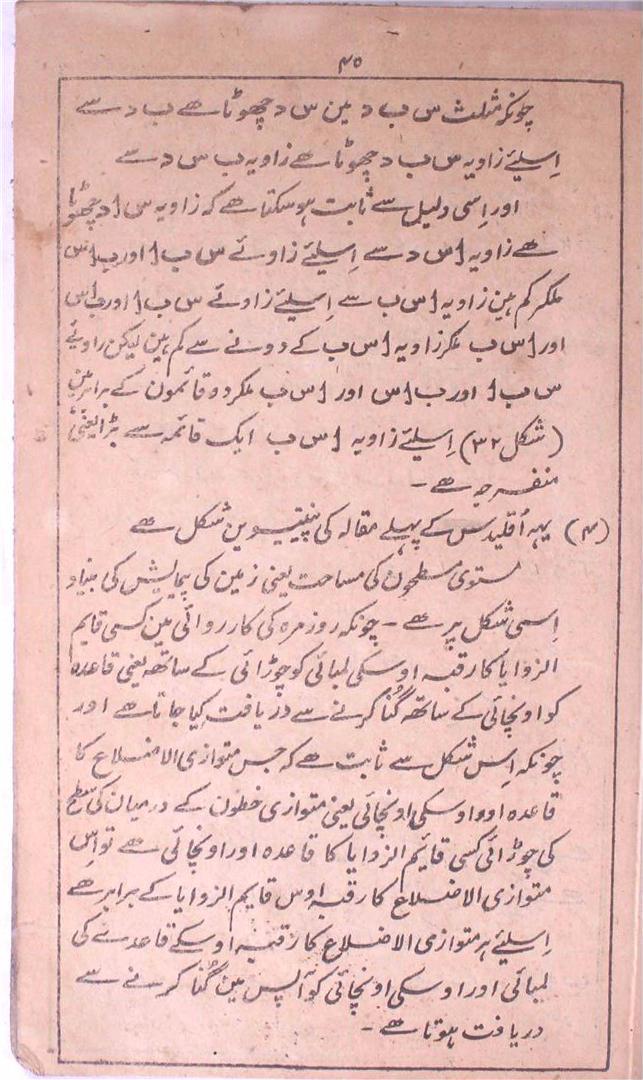 ۴۵
چونکہ مثلث س ب د مین س د چھوٹا ھے ب د سے
اِسلیئے زاویہ س ب د چھوٹا ھے زاویہ ب س د سے
اور اِسی دلیل سے ثابت ہوسکتا ھے کہ زاویہ س ا د چھوٹا
ھے زاویہ ا س د سے اِسلیئے زاوئے س ب ا اور ب ا س
ملکر کم ہین زاویہ ا س ب سے اِسلیئے زاوئے س ب ا اور ب ا س
اور ا س ب ملکر زاویہ ا س ب کے دونے سے کم ہین لیکن زاوئے
س ب ا اور ب ا س اور ا س ب ملکر دو قائمون کے برابر ہین
(شکل ۳۲) اِسلیئے زاویہ ا س ب ایک قائمہ سے بڑا یعنی
منفرجہ ھے ۔
(۴) یہہ اُقلیدس کے پہلے مقالہ کی پینتیسوین شکل ھے
مستوی سطحون کی مساحت یعنی زمین کی پیمایش کی بنیاد
اِسی شکل پر ھے ۔ چونکہ روزمرہ کی کارروائی مین کسی قایم
الزوایا کا رقبہ اوسکی لمبائی کو چوڑائی کے ساتھ یعنی قاعدہ
کو اونچائی کے ساتھ گُنا کرنے سے دریافت کیا جاتا ھے اور
چونکہ اِس شکل سے ثابت ھے کہ جس متوازی الاضلاع کا
قاعدہ اور اوسکی اونچائی یعنی متوازی خطون کے درمیان کی سطح
کی چوڑائی کسی قایم الزوایا کا قاعدہ اور اونچائی ھے تو اِس
متوازی الاضلاع کا رقبہ اوس قایم الزوایا کے برابر ھے
اِسلیئے ہر متوازی الاضلاع کا رقبہ اوسکے قاعدے کی
لمبائی اور اوسکی اونچائی کو آپس مین گُنا کرنے سے
دریافت ہوتا ھے ۔